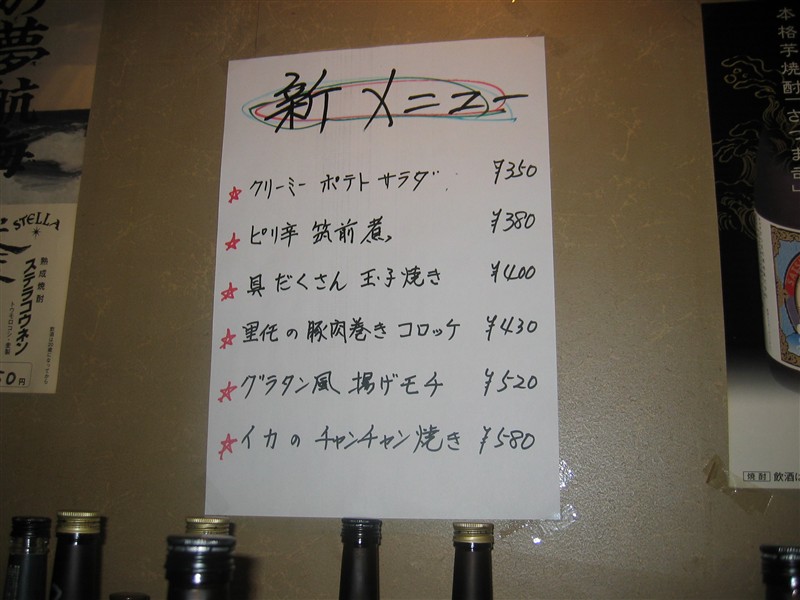 の夢航海
STELLA
熟成焼酎
ステラコウネン
トウモロコシ・麦製
50円
新メニュー
☆ クリーミー ポテト サラダ ¥350
☆ ピリ辛 筑前煮 ¥380
☆ 具だくさん 玉子焼き ¥400
☆ 里任の豚肉巻き コロッケ ¥430
☆ グラタン風 揚げモチ ¥520
☆ イカの チャンチャン焼き ¥580
本格芋焼酎「さつま司」
焼酎 飲酒は